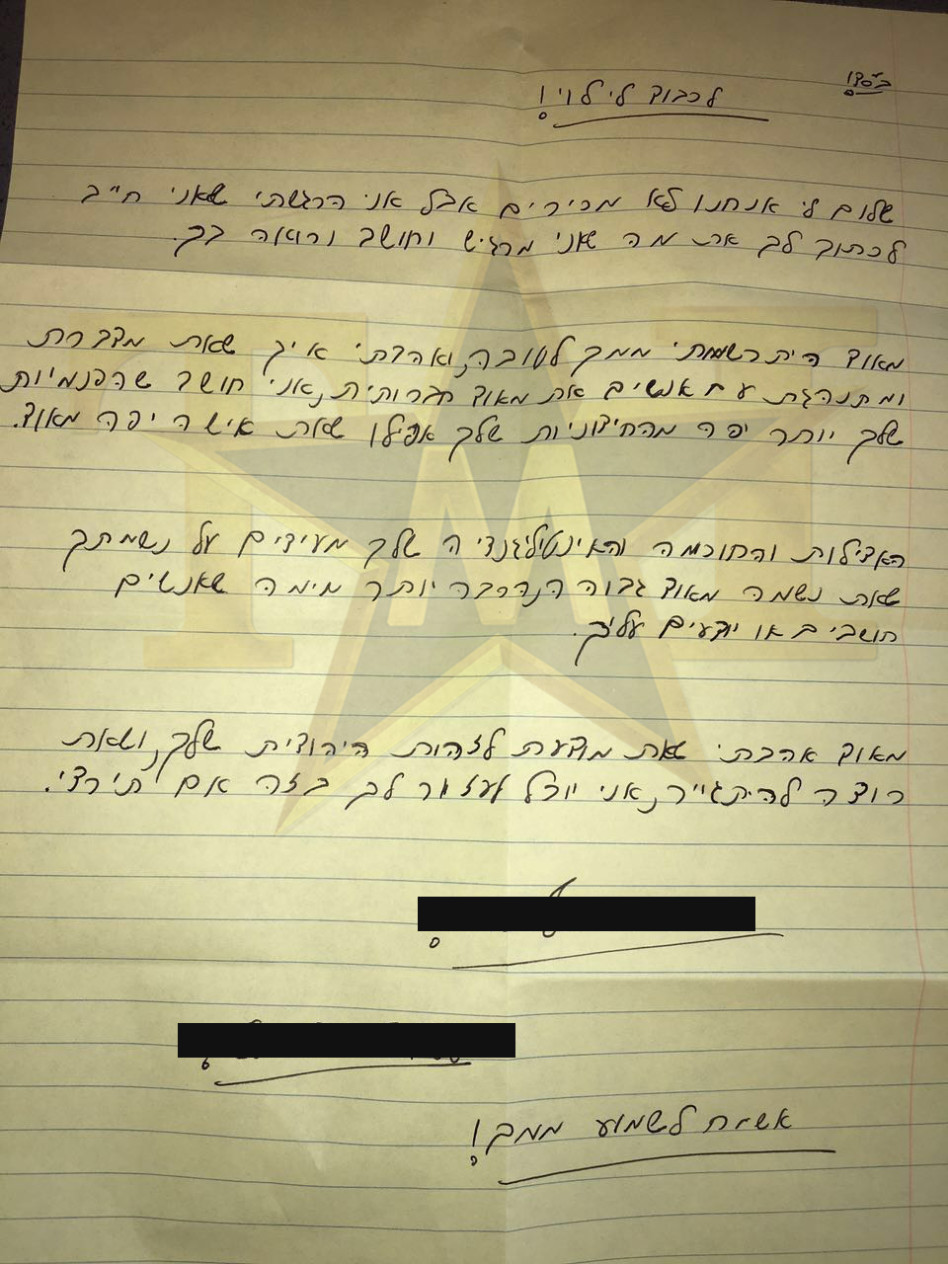 בס"ד!
לכבוד לי לוי!
שלום לי אנחנו לא מכירים אבל אני הרגשתי שאני חייב
לכתוב לך את מה שאני מרגיש וחושב ורואה בך.
מאוד היתרשמתי ממך לטובה, ואהבתי איך שאת מדברת
ומתנהגת עם אנשים את מאוד חברותית, אני חושב שהפנמיות
שלך יותר יפה מהחיצוניות שלך אפילו שאת אישה יפה מאוד.
האצילות והחוכמה והאינטיליגנציה שלך מעידים על נשמתך
שאת נשמה מאוד גבוהה, הרבה יותר מימה שאנשים
חושבים או יודעים עליך.
מאוד אהבתי שאת מודעת לזהות היהודית שלך, ושאת
רוצה להיתגייר, אני יוכל לעזור לך בזה אם תירצי.
אשמח לשמוע ממך!
TMI